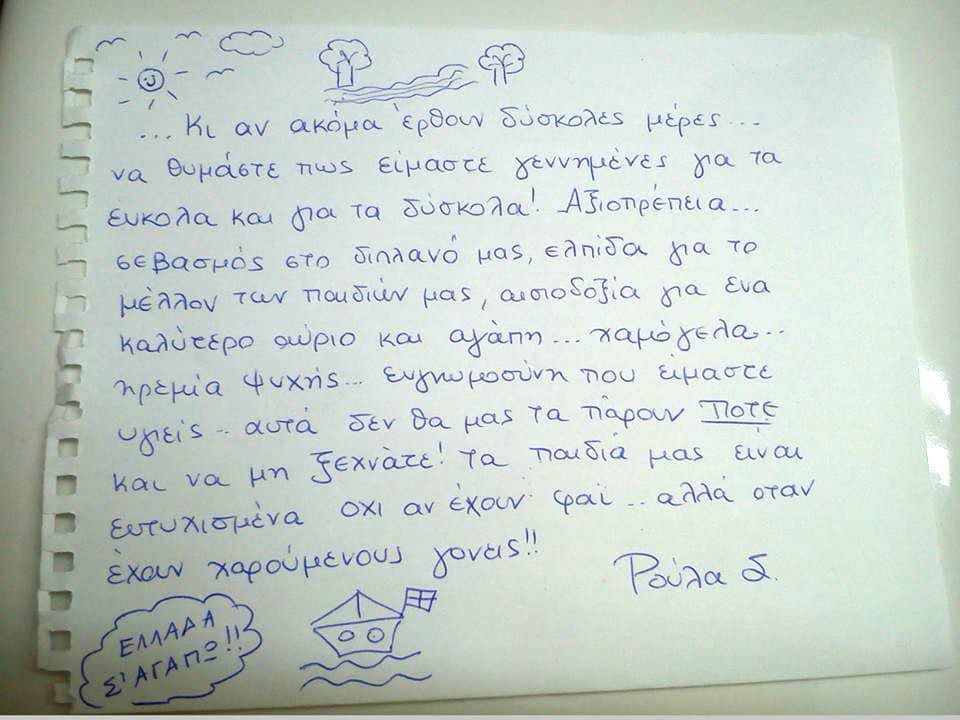 ... Κι αν ακόμα έρθουν δύσκολες μέρες...
να θυμάστε πως είμαστε γεννημένες για τα
ευκολα και για τα δύσκολα! Αξιοπρέπεια...
σεβασμός στο διπλανό μας, ελπίδα για το
μέλλον των παιδιών μας, αισιοδοξία για ενα
καλύτερο αύριο και αγάπη... χαμόγελα..
ηρεμία ψυχής... ευγνωμοσύνη που είμαστε
υγιείς.. αυτά δεν θα μας τα πάρουν ΠΟΤΕ
και να μη ξεχνάτε! Τα παιδιά μας είναι
ευτυχισμένα οχι αν έχουν φαϊ.. αλλά οταν
έχουν χαρούμενους γονεις!!
Ρούλα Δ.
ΕΛΛΑΔΑ
Σ'ΑΓΑΠΩ!!